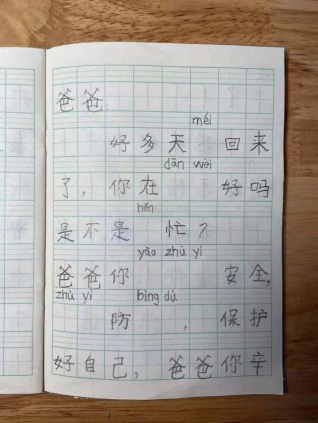 爸爸:
méi
好多天 回来
dān wèi
了，你在 好吗
hěn
是不是 忙？
yāo zhù yì
爸爸你 安全,
zhù yì bìng dú
防 ，保护
好自己，爸爸你辛